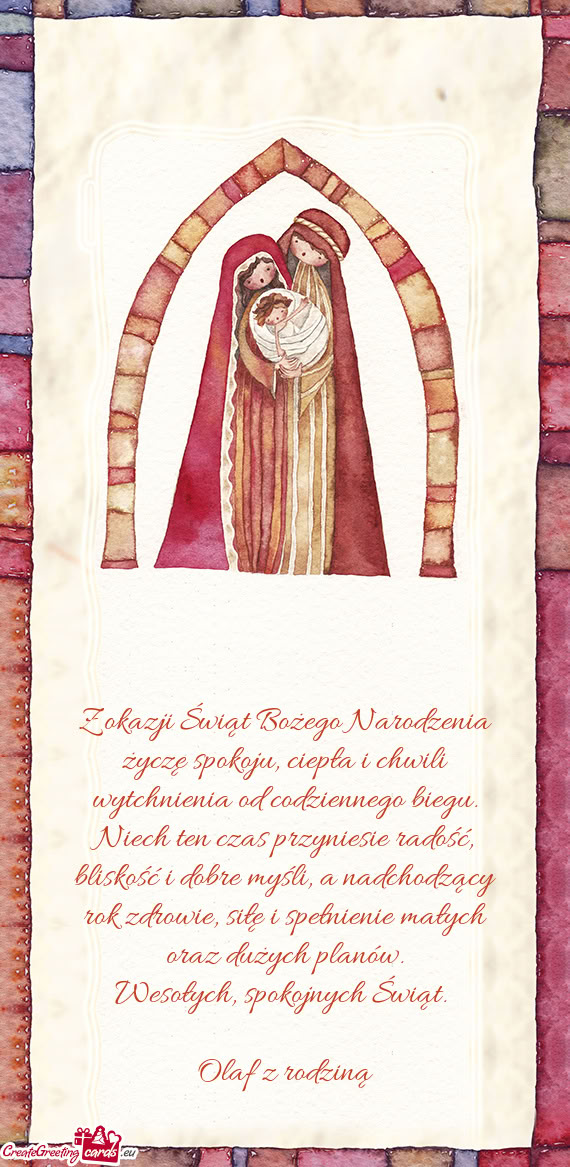 Z okazji Świąt Bożego Narodzenia
życzę spokoju, ciepła i chwili
wytchnienia od codziennego biegu.
Niech ten czas przyniesie radość,
bliskość i dobre myśli, a nadchodzący
rok zdrowie, siłę i spełnienie małych
oraz dużych planów.
Wesołych, spokojnych Świąt.
Olaf z rodziną
CreateGreeting cards .eu